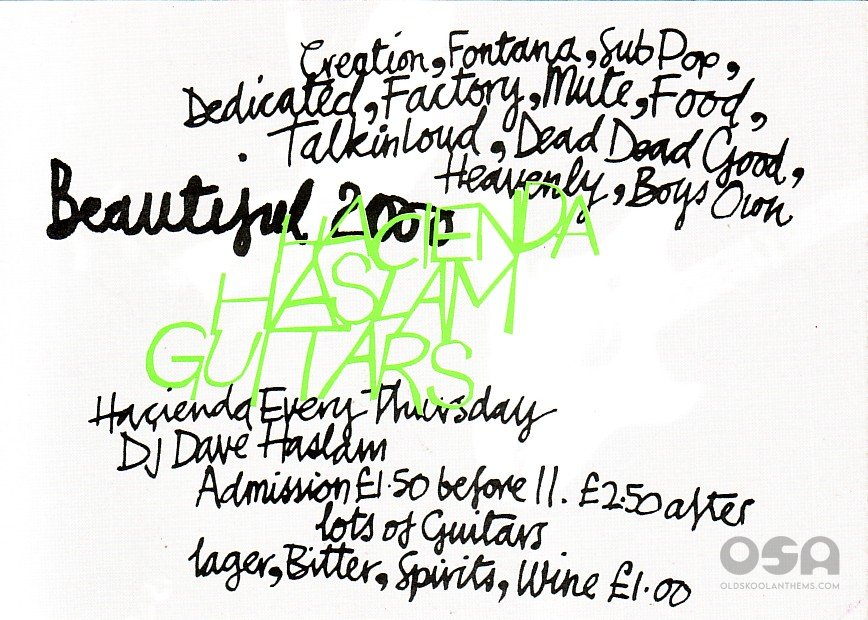 Creation, Fontana, Sub Pop,
Dedicated, Factory, Mute, Food,
Talkinloud, Dead Dead Good,
Heavenly, Boys Own
Beautiful 2000
HACIENDA
HASLAM
GUITARS
Haçienda Every Thursday
DJ Dave Haslam
Admission £1.50 before 11. £2.50 after
lots of Guitars
lager, Bitter, Spirits, Wine £1.00
OSA
OLDSKOOLANTHEMS.COM